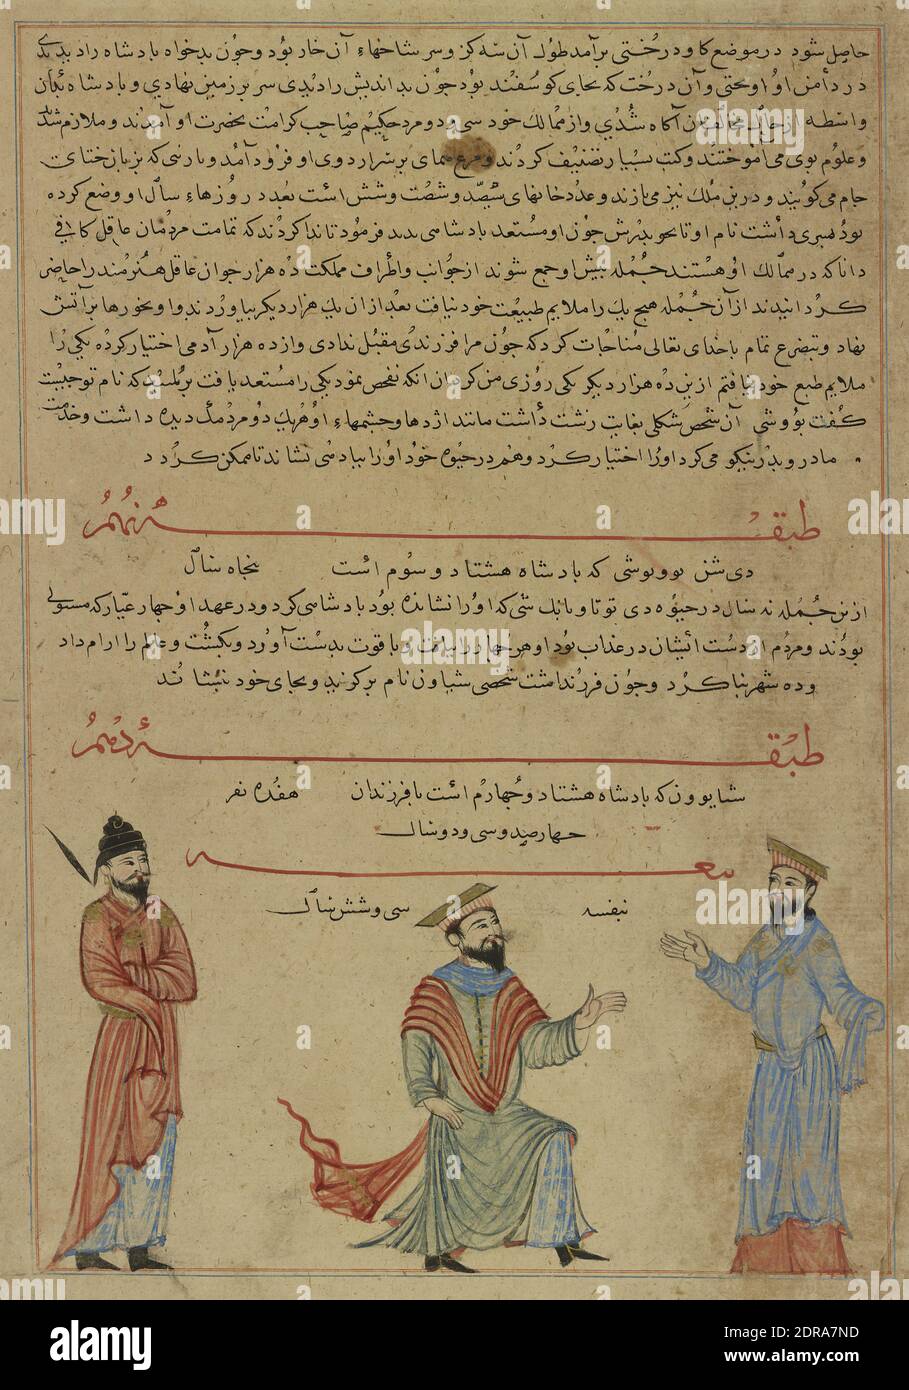 حاصل شود در موضع کاو درختی برآمد طول آن سه کز و سر شاخهاء آن خار بود و جون بدخواه بادشاه را دیدی
در دامن او اوبختی و آن درخت که بجای کوسفند بود جون بد اندیش را دیدی سر بر زمین نهادی و بادشاه بدان
واسطه از حال مخالفان آکاه شدی و از ممالک خود سی و دو مرد حکیم صاحب کرامت بحضرت او آمدند و ملازم شدند
و علوم بوی می آموختند و کتب بسیار تصنیف کردند و مرغ همای بر سرا ردوی او فرود آمد و بارسی که بزبان ختای
جام می کویند و در بن ملک نیز می بازند و عدد خانهای سیصد و شصت و شش است بعدد روزهاء سال او وضع کرده
بود بسری داشت نام او تا بحو بدرش جون او مستعد بادشاهی بدید فرمود تا ندا کردند که تمامت مردمان عاقل کافی
دانا که در ممالک او هستند جمله بیش او جمع شوند از جوانب و اطراف مملکت ده هزار جوان عاقل هنرمند را حاضر
کردانیدند از آن جمله هیچ یک را ملایم طبیعت خود نیافت بعد از ان یک هزار دیکر بیاوردند و او بخورها بر آتش
نهاد و بتضرع تمام با خدای تعالی مناجات کرد که جون مرا فرزندی مقبل ندادی و از ده هزار آدمی اختیار کرده یکی را
ملایم طبع خود نیافتم ازین ده هزار دیکر یکی روزی من کردان انکه تفحص نمود یکی را مستعد یافت برسید که نام تو جیست
کفت بووشی آن شخص شکلی بغایت زشت داشت مانند اژدها و جشمهاء او هر یک دو مردمک دیده داشت و خدمت
مادر و بدر نیکو می کرد او را اختیار کرد و هم در حیوه خود او را ببادشاهی نشاند تا متمکن کردد
طبقـه نهم
دی شن یوویوشی که بادشاه هشتاد و سوم است بنجاه سال
ازین جمله نه سال در حیوه دی توتاو بانک شی که او را نشانده بود بادشاهی کرد و در عهد او جهار عیار که مستولی
بودند و مردم از دست ایشان در عذاب بود او هر جهار را بیافت و با قوت بدست آورد و بکشت و عالم را آرام داد
و ده شهر بنا کرد و جون فرزند نداشت شخصی شیاوون نام بر کزید و بجای خود بنشاند
طبقـه دهم
شیایوون که بادشاه هشتاد و جهارم است با فرزندان هفده نفر
جهارصد و سی و دو سال
معه
بنفسه سی و شش سال
alamy
Image ID: 2DRA7ND
www.alamy.com